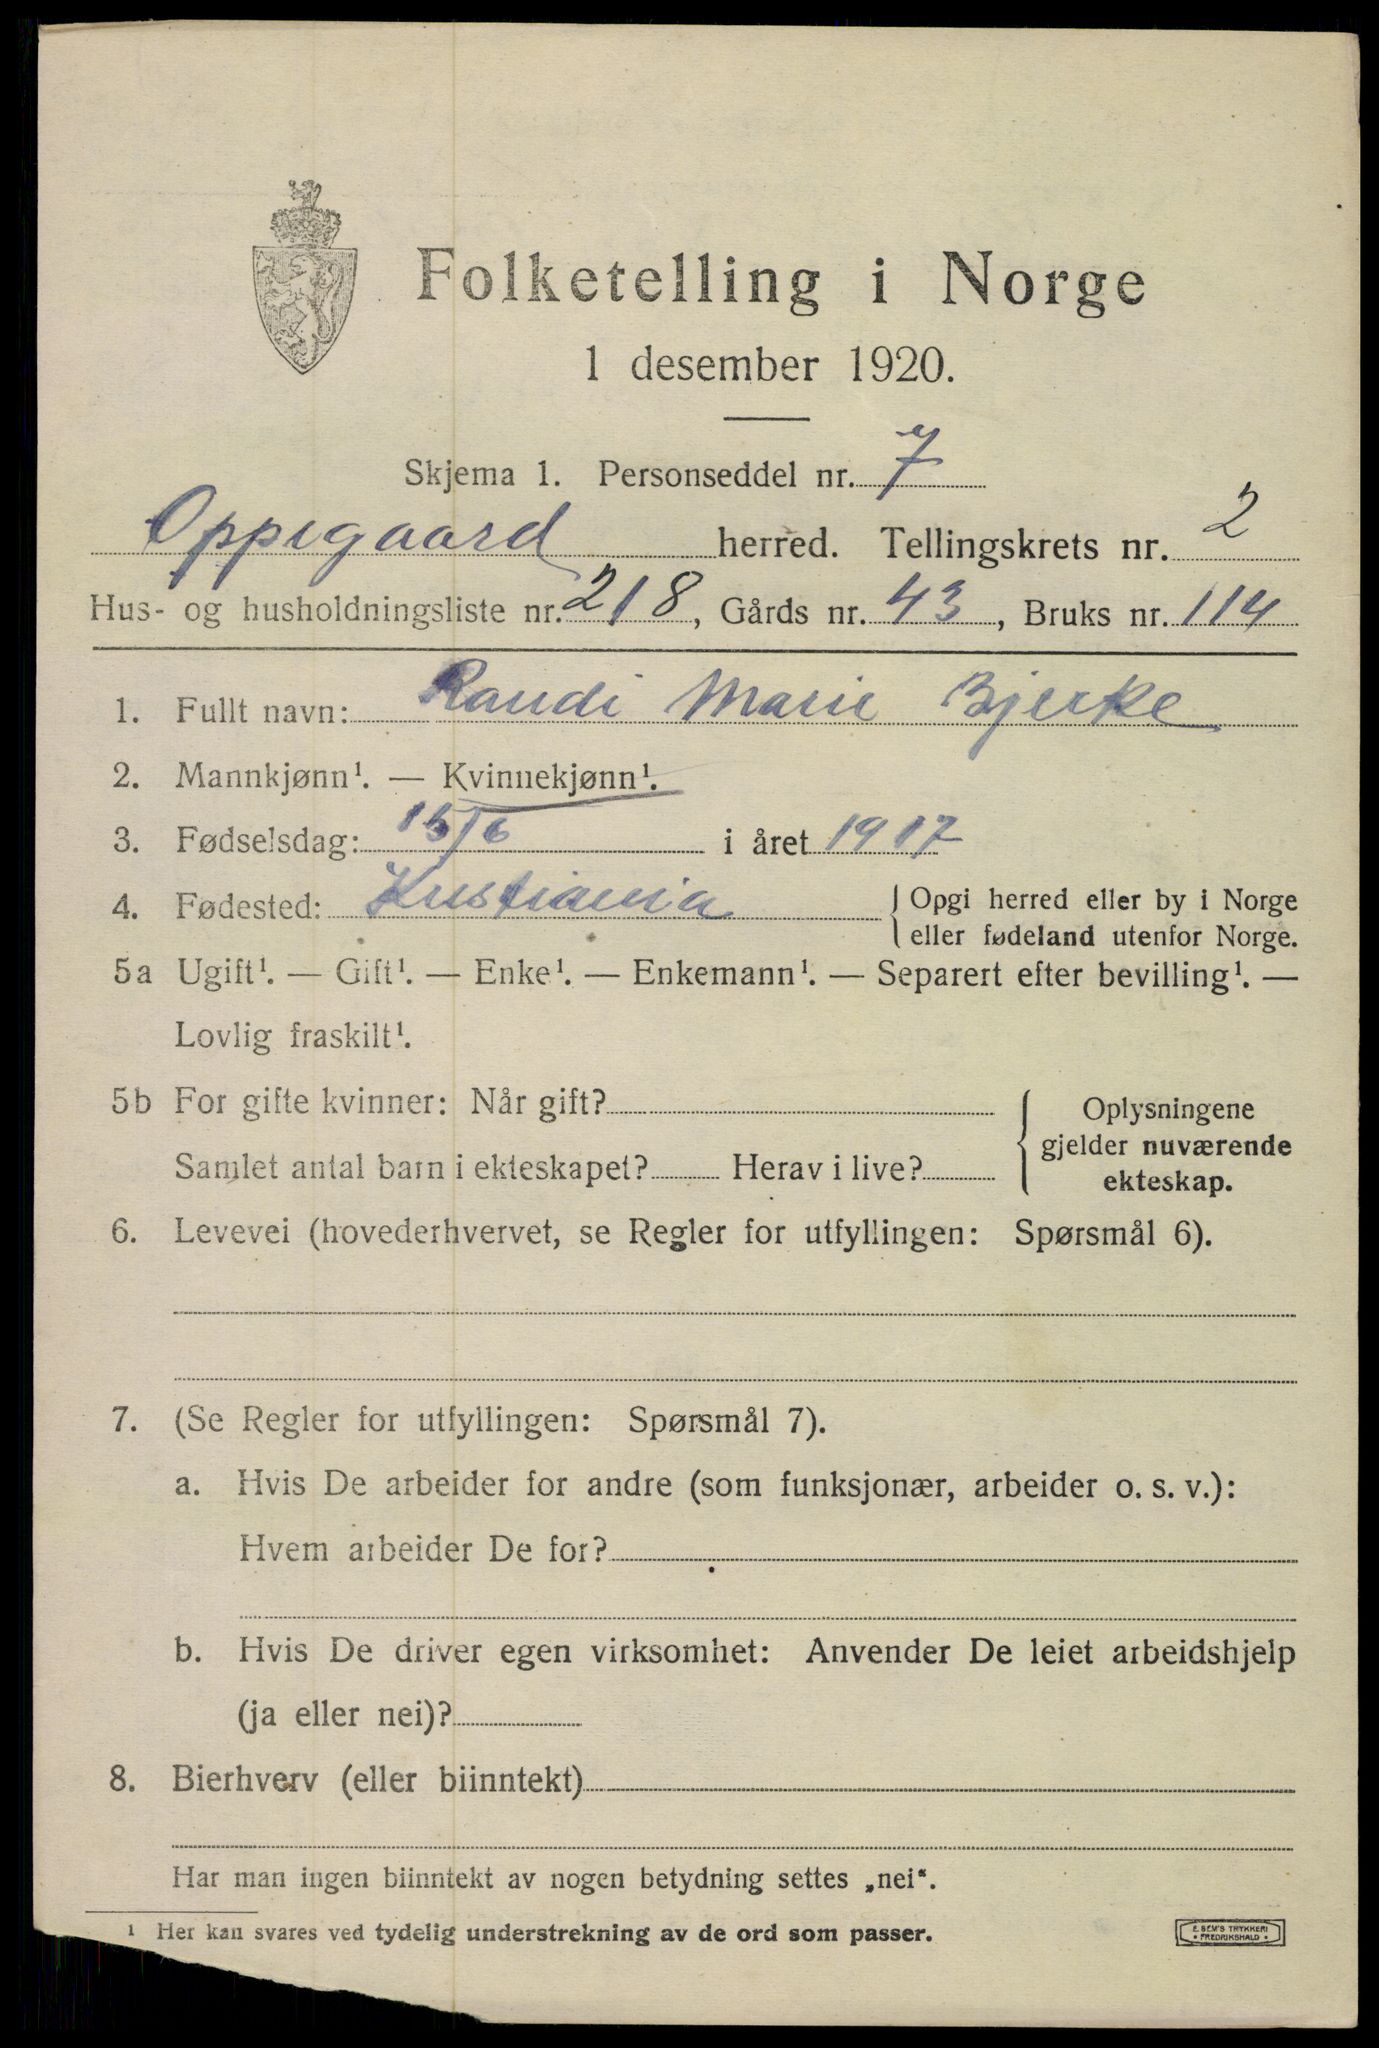 Folketelling i Norge
1 desember 1920.
Skjema 1. Personseddel nr. 7
Oppegaard herred. Tellingskrets nr. 2
Hus- og husholdningsliste nr. 218, Gårds nr. 43, Bruks nr. 114
1. Fullt navn: Randi Marie Bjerke
2. Mannkjønn¹. — Kvinnekjønn¹.
3. Fødselsdag: 15/6 i året 1917
4. Fødested: Kristiania { Opgi herred eller by i Norge
eller fødeland utenfor Norge.
5a Ugift¹. — Gift¹. — Enke¹. — Enkemann¹. — Separert efter bevilling¹. —
Lovlig fraskilt¹.
5b For gifte kvinner: Når gift? { Oplysningene
gjelder nuværende
Samlet antal barn i ekteskapet? Herav i live?
ekteskap.
6. Levevei (hovederhvervet, se Regler for utfyllingen: Spørsmål 6).
7. (Se Regler for utfyllingen: Spørsmål 7).
a. Hvis De arbeider for andre (som funksjonær, arbeider o. s. v.):
Hvem arbeider De for?
b. Hvis De driver egen virksomhet: Anvender De leiet arbeidshjelp
(ja eller nei)?
8. Bierhverv (eller biinntekt)
Har man ingen biinntekt av nogen betydning settes „nei“.
¹ Her kan svares ved tydelig understrekning av de ord som passer.
E. SEM'S TRYKKERI
• FREDRIKSHALD •